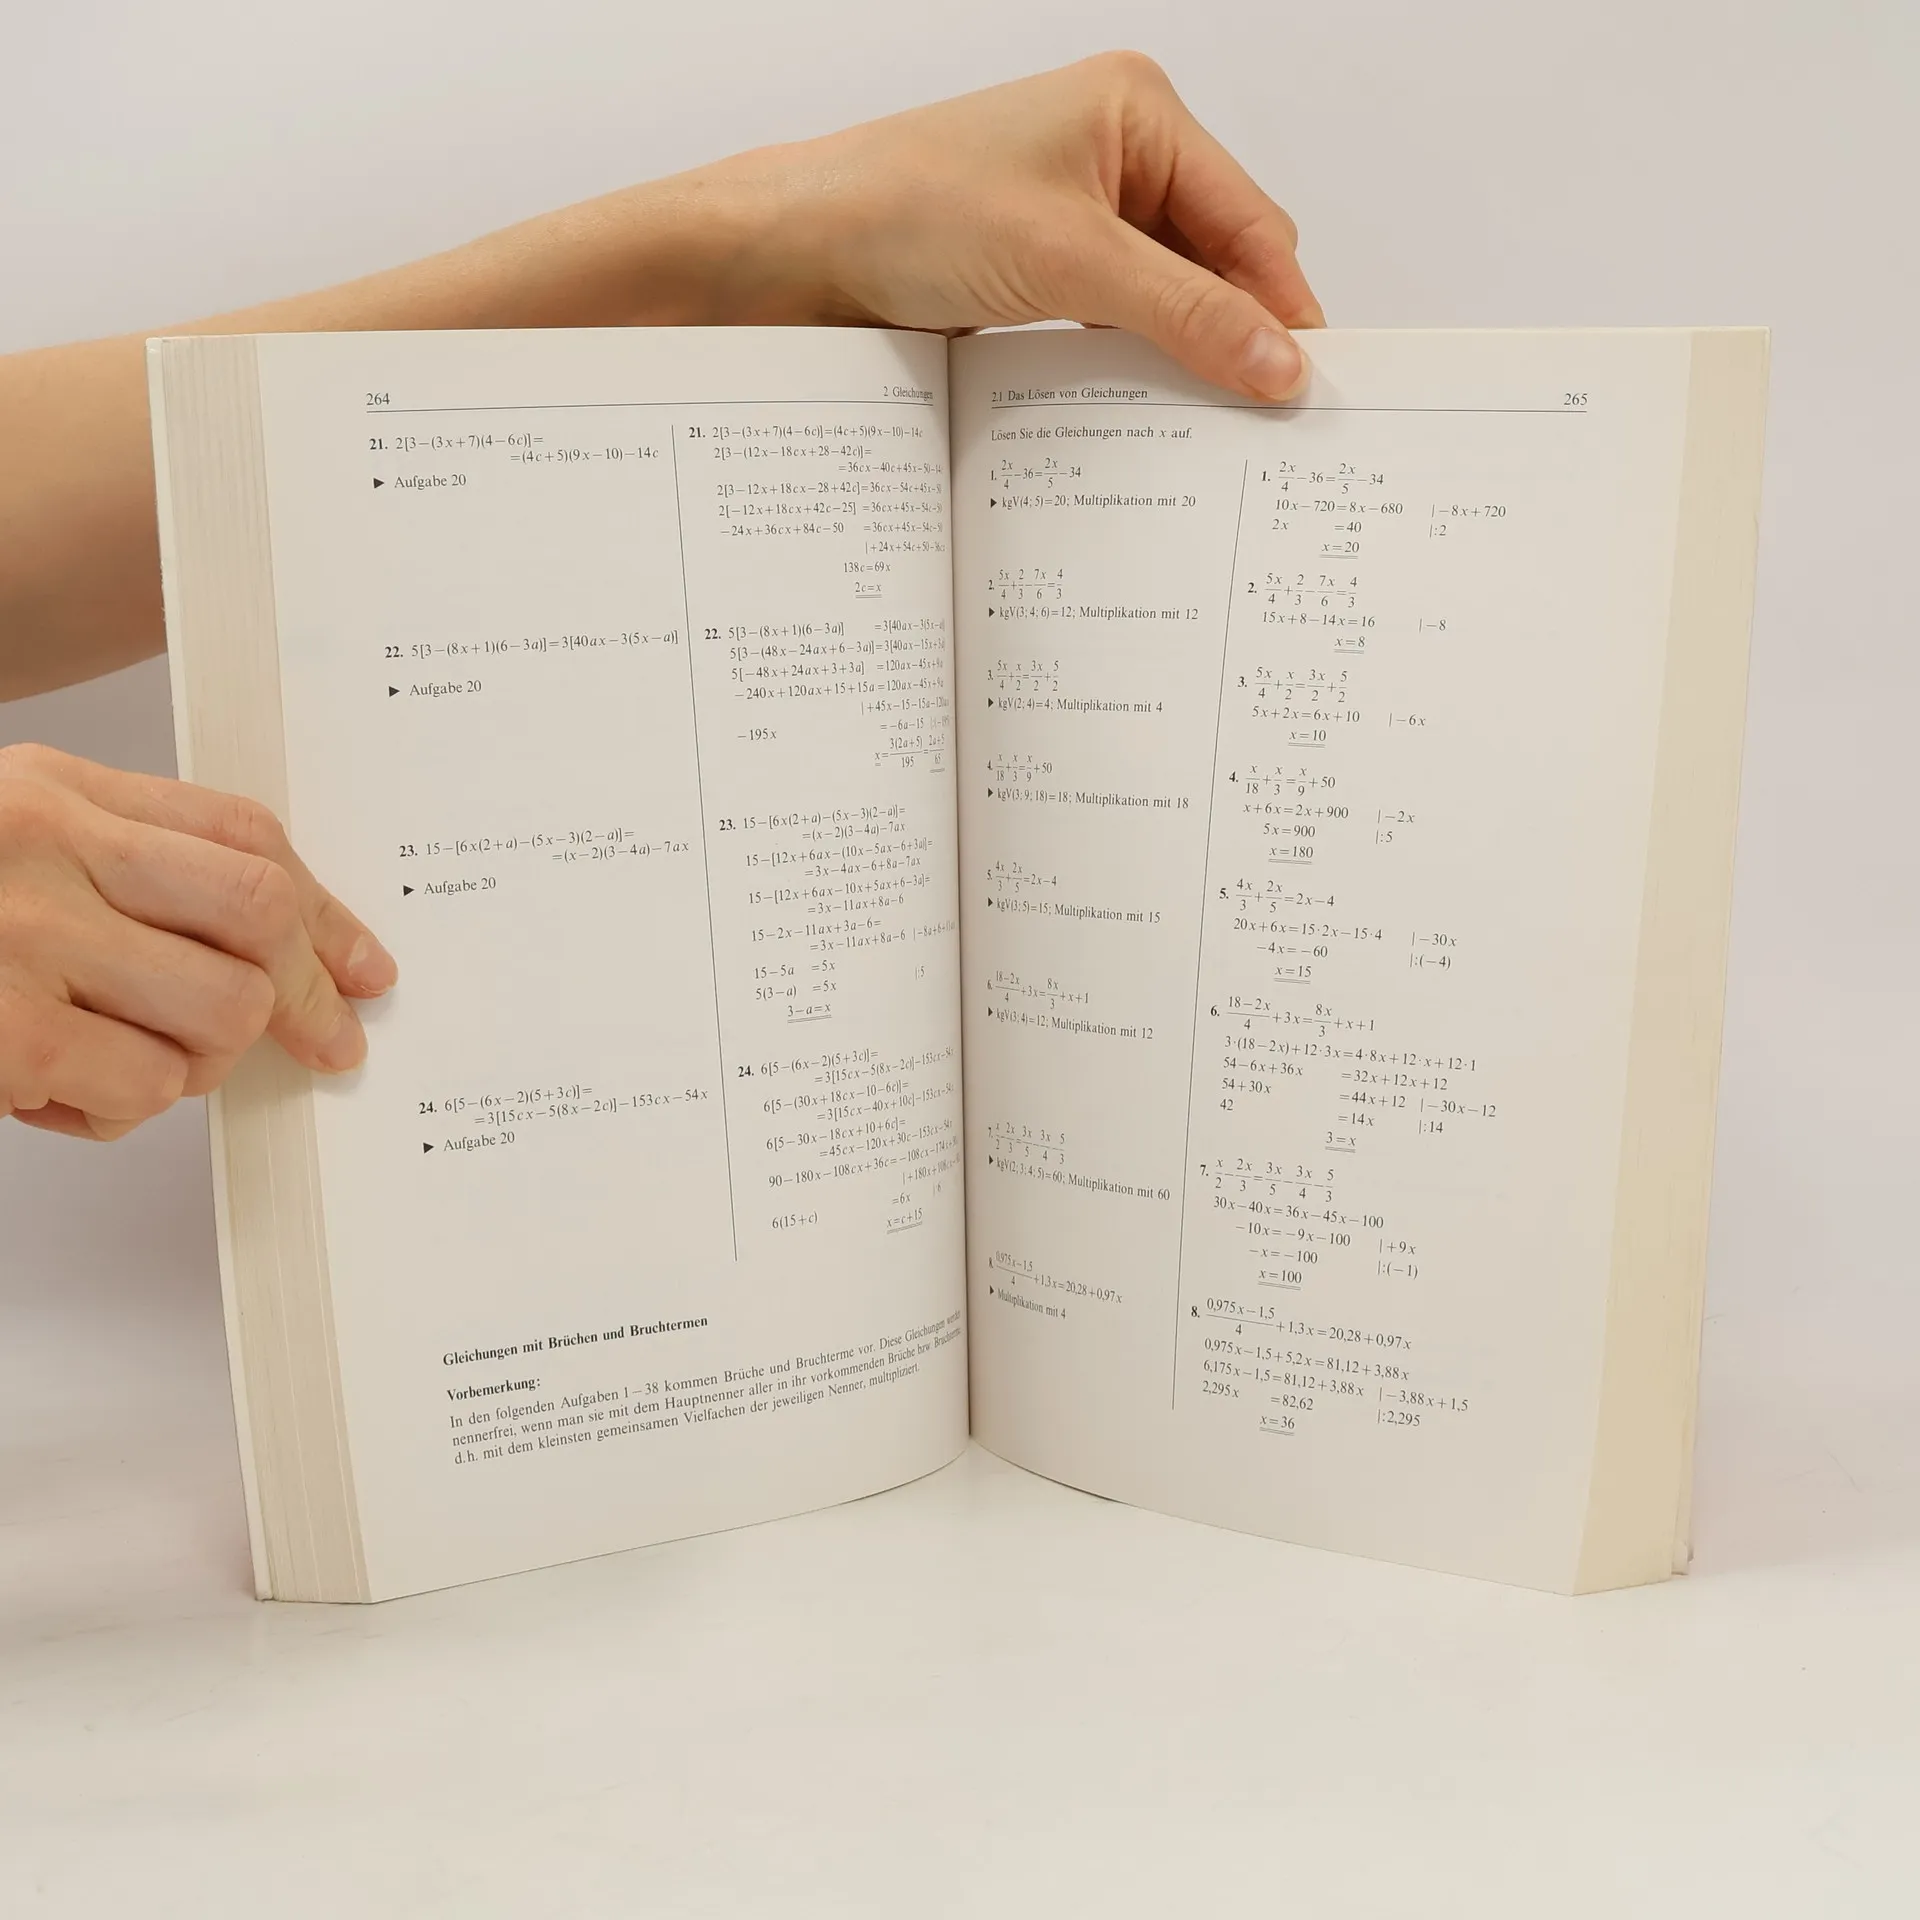 264
2 Gleichungen
21. 2[3−(3x+7)(4−6c)]=
=(4c+5)(9x−10)−14c
▶ Aufgabe 20
22. 5[3−(8x+1)(6−3a)]=3[40ax−3(5x−a)]
▶ Aufgabe 20
23. 15−[6x(2+a)−(5x−3)(2−a)]=
=(x−2)(3−4a)−7ax
▶ Aufgabe 20
24. 6[5−(6x−2)(5+3c)]=
=3[15cx−5(8x−2c)]−153cx−54x
▶ Aufgabe 20
21. 2[3−(3x+7)(4−6c)]=(4c+5)(9x−10)−14c
2[3−(12x−18cx+28−42c)]=
=36cx−40c+45x−50−14c
2[3−12x+18cx−28+42c]=36cx−54c+45x−50
2[−12x+18cx+42c−25] =36cx+45x−54c−50
−24x+36cx+84c−50 =36cx+45x−54c−50
|+24x+54c+50−36cx
138c=69x
2c=x
22. 5[3−(8x+1)(6−3a)] =3[40ax−3(5x−a)]
5[3−(48x−24ax+6−3a)]=3[40ax−15x+3a]
5[−48x+24ax+3+3a] =120ax−45x+9a
−240x+120ax+15+15a=120ax−45x+9a
|+45x−15−15a−120ax
−195x =−6a−15 |:(−195)
x=3(2a+5)/195=2a+5/65
23. 15−[6x(2+a)−(5x−3)(2−a)]=
=(x−2)(3−4a)−7ax
15−[12x+6ax−(10x−5ax−6+3a)]=
=3x−4ax−6+8a−7ax
15−[12x+6ax−10x+5ax+6−3a]=
=3x−11ax+8a−6
15−2x−11ax+3a−6=
=3x−11ax+8a−6 |−8a+6+11ax
15−5a =5x
5(3−a) =5x |:5
3−a=x
24. 6[5−(6x−2)(5+3c)]=
=3[15cx−5(8x−2c)]−153cx−54x
6[5−(30x+18cx−10−6c)]=
=3[15cx−40x+10c]−153cx−54x
6[5−30x−18cx+10+6c]=
=45cx−120x+30c−153cx−54x
90−180x−108cx+36c=−108cx−174x+30c
=6x |:6
6(15+c)
x=c+15
Gleichungen mit Brüchen und Bruchtermen
Vorbemerkung:
In den folgenden Aufgaben 1−38 kommen Brüche und Bruchterme vor. Diese Gleichungen werden
nennerfrei, wenn man sie mit dem Hauptnenner aller in ihr vorkommenden Brüche bzw. Bruchterme,
d.h. mit dem kleinsten gemeinsamen Vielfachen der jeweiligen Nenner, multipliziert.
2.1 Das Lösen von Gleichungen
265
Lösen Sie die Gleichungen nach x auf.
1. 2x/4−36=2x/5−34
▶ kgV(4; 5)=20; Multiplikation mit 20
2. 5x/4+2/3−7x/6=4/3
▶ kgV(3; 4; 6)=12; Multiplikation mit 12
3. 5x/4+x/2=3x/2+5/2
▶ kgV(2; 4)=4; Multiplikation mit 4
4. x/18+x/3=x/9+50
▶ kgV(3; 9; 18)=18; Multiplikation mit 18
5. 4x/3+2x/5=2x−4
▶ kgV(3; 5)=15; Multiplikation mit 15
6. 18−2x/4+3x=8x/3+x+1
▶ kgV(3; 4)=12; Multiplikation mit 12
7. x/2−2x/3=3x/5−3x/4−5/3
▶ kgV(2; 3; 4; 5)=60; Multiplikation mit 60
8. 0,975x−1,5/4+1,3x=20,28+0,97x
▶ Multiplikation mit 4
1. 2x/4−36=2x/5−34
10x−720=8x−680 |−8x+720
2x =40 |:2
x=20
2. 5x/4+2/3−7x/6=4/3
15x+8−14x=16 |−8
x=8
3. 5x/4+x/2=3x/2+5/2
5x+2x=6x+10 |−6x
x=10
4. x/18+x/3=x/9+50
x+6x=2x+900 |−2x
5x=900 |:5
x=180
5. 4x/3+2x/5=2x−4
20x+6x=15·2x−15·4 |−30x
−4x=−60 |:(−4)
x=15
6. 18−2x/4+3x=8x/3+x+1
3·(18−2x)+12·3x=4·8x+12·x+12·1
54−6x+36x =32x+12x+12
54+30x =44x+12 |−30x−12
42 =14x |:14
3=x
7. x/2−2x/3=3x/5−3x/4−5/3
30x−40x=36x−45x−100
−10x=−9x−100 |+9x
−x=−100 |:(−1)
x=100
8. 0,975x−1,5/4+1,3x=20,28+0,97x
0,975x−1,5+5,2x=81,12+3,88x
6,175x−1,5=81,12+3,88x |−3,88x+1,5
2,295x =82,62 |:2,295
x=36